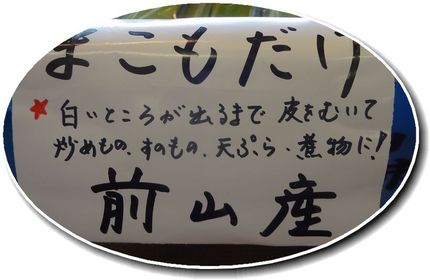 まこもだけ
★白いところが出るまで皮をむいて
炒めもの、すのもの、天ぷら、煮物に!
前山産